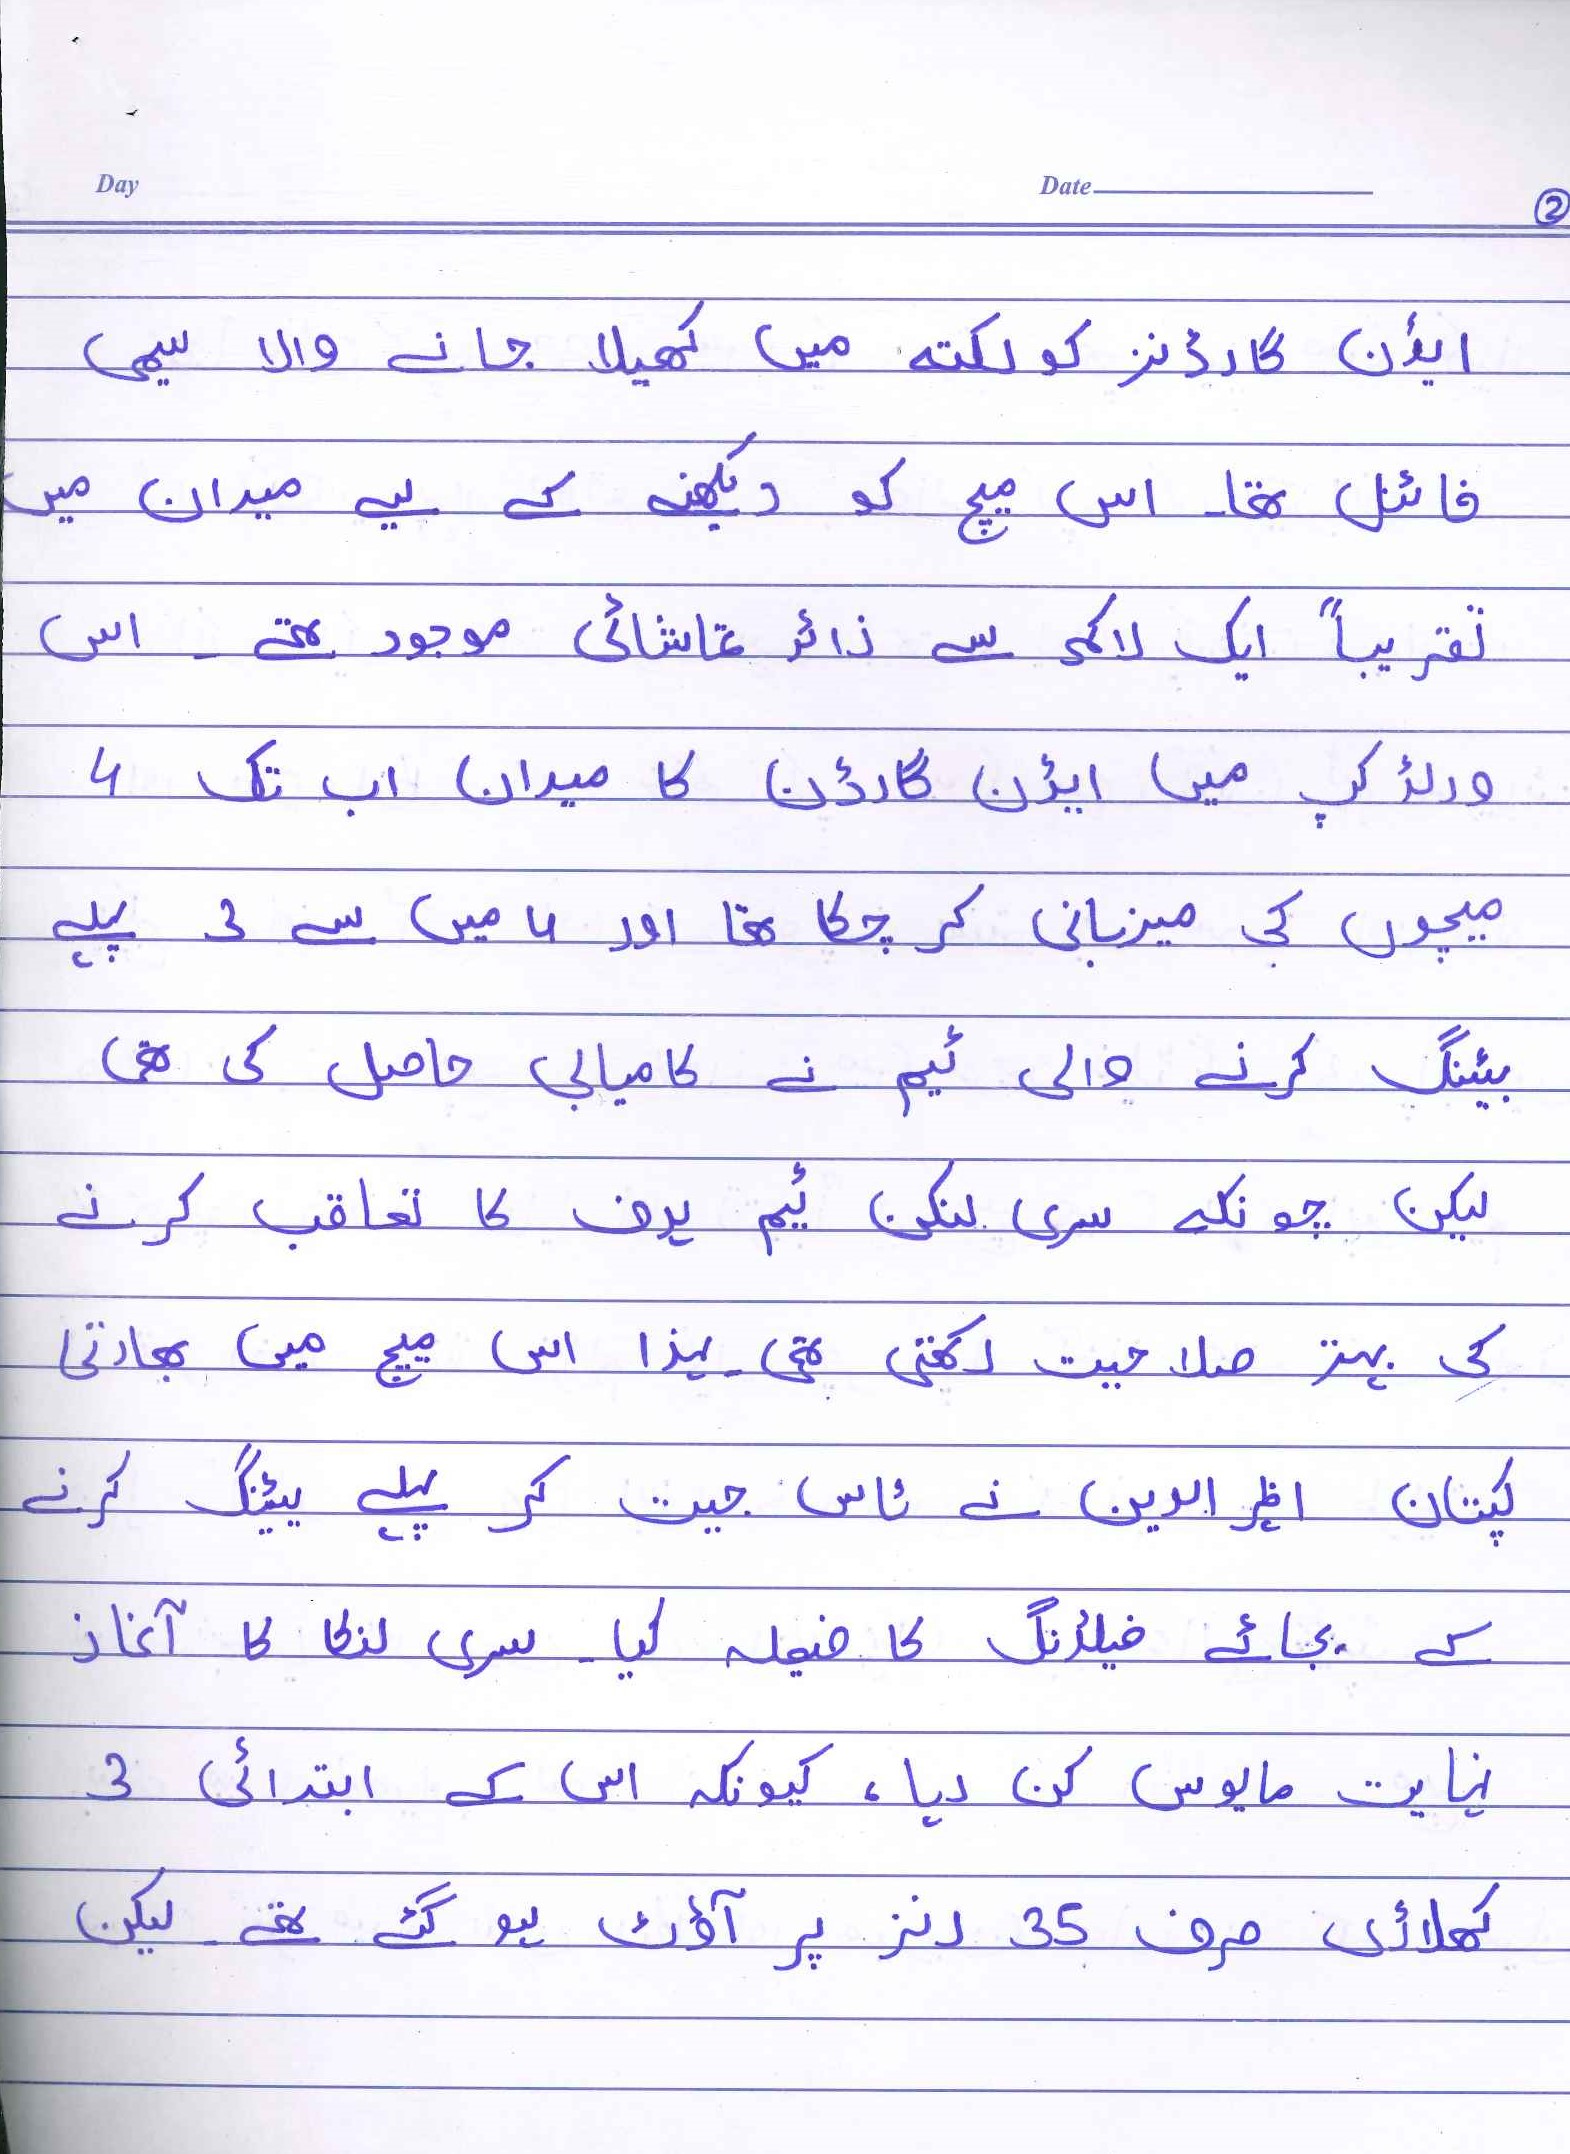 Day Date
②
ایڈن گارڈنز کولکتہ میں کھیلا جانے والا سیمی
فائنل تھا۔ اس میچ کو دیکھنے کے لیے میدان میں
تقریباً ایک لاکھ سے زائد تماشائی موجود تھے ۔ اس
ورلڈ کپ میں ایڈن گارڈن کا میدان اب تک 4
میچوں کی میزبانی کر چکا تھا اور 4 میں سے 3 پہلے
بیٹنگ کرنے والی ٹیم نے کامیابی حاصل کی تھی
لیکن چونکہ سری لنکن ٹیم ہدف کا تعاقب کرنے
کی بہتر صلاحیت رکھتی تھی۔ لہذا اس میچ میں بھارتی
کپتان اظہر الدین نے ٹاس جیت کر پہلے بیٹنگ کرنے
کے بجائے فیلڈنگ کا فیصلہ کیا۔ سری لنکا کا آغاز
نہایت مایوس کن دیا، کیونکہ اس کے ابتدائی 3
کھلاڑی صرف 35 رنز پر آؤٹ ہو گئے تھے۔ لیکن